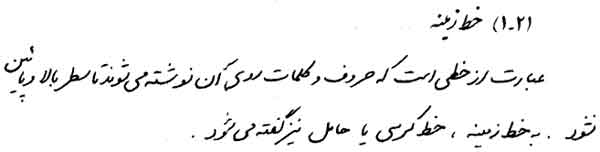 (۱-۲) خط زمینه
عبارت از خطی است که حروف و کلمات روی آن نوشته می‌شوند تا سطر بالا و پائین
نشود . به خط زمینه ، خط کرسی یا حامل نیز گفته می‌شود .